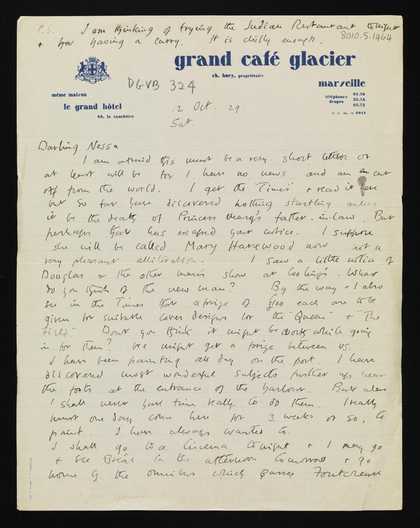 P.S. I am thinking of trying the Indian Restaurant tonight
+ for having a curry. It is chilly enough.
8010.5.1464
grand café glacier
ch. bory, propriétaire
DGVB 324
marseille
même maison
le grand hôtel
66, la canebière
téléphones
drapes
12 Oct. 29
Sat
Darling Nessa
I am afraid this must be a very short letter or
at least will be for I have no news and am cut
off from the world. I get the Times + read it
but so far have discovered nothing startling unless
it be the death of Princess Mary's father-in-law. But
perhaps that has escaped your notice. I suppose
she will be called Mary Harewood now not a
very pleasant alliteration. I saw a little notice of
Douglas + the other man's show at Cooling's. What
do you think of the new man? By the way I also
see in the Times that a prize of £100 each are to be
given for suitable cover designs for the "Queen" + "The
Field". Don't you think it might be worth while going
in for them? We might get a prize between us.
I have been painting all day on the port. I have
discovered most wonderful subjects further up, near
the forts at the entrance of the harbour. But alas
I shall never have time really to do them. I really
must one day come here for 3 weeks or so, to
paint. I have always wanted to.
I shall go to a Cinema tonight + I may go
+ see in the afternoon tomorrow + go
home by the omnibus which passes Fontcreuse